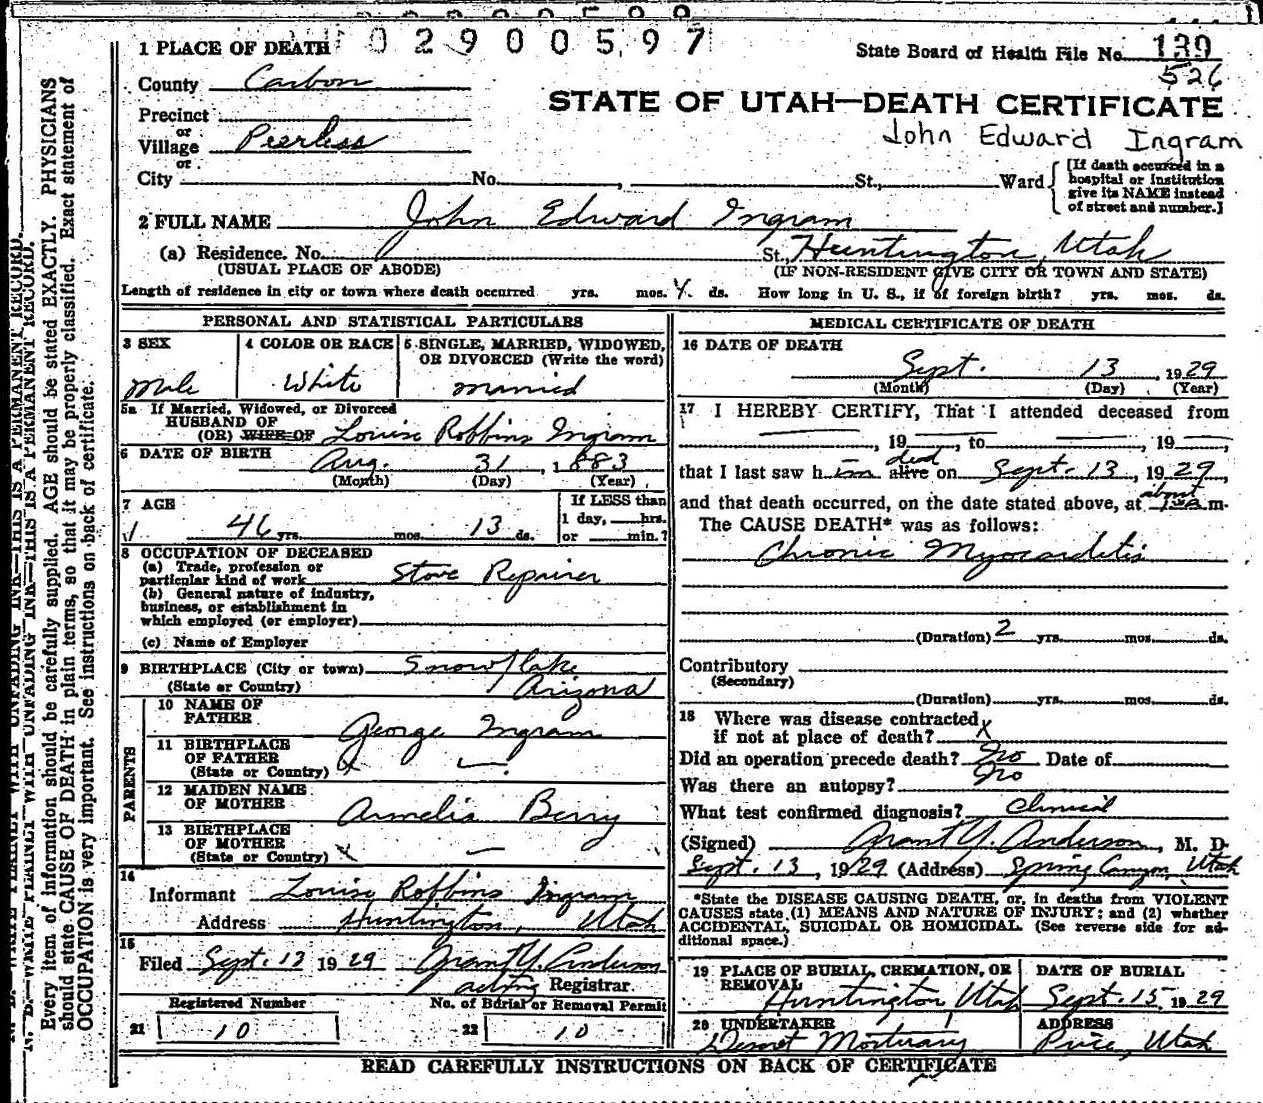 0 2 9 0 0 5 9 7
1 PLACE OF DEATH
State Board of Health File No. 139
526
County Carbon
STATE OF UTAH—DEATH CERTIFICATE
Precinct
or
Village Peerless
John Edward Ingram
or
City No. , St., Ward
[If death occurred in a
hospital or institution
give its NAME instead
of street and number.]
2 FULL NAME John Edward Ingram
(a) Residence. No. St., Huntington, Utah
(USUAL PLACE OF ABODE) (IF NON-RESIDENT GIVE CITY OR TOWN AND STATE)
Length of residence in city or town where death occurred yrs. mos. 4 ds. How long in U. S., if of foreign birth? yrs. mos. ds.
PERSONAL AND STATISTICAL PARTICULARS
3 SEX
Male
4 COLOR OR RACE
White
5 SINGLE, MARRIED, WIDOWED,
OR DIVORCED (Write the word)
Married
5a If Married, Widowed, or Divorced
HUSBAND OF
(OR) WIFE OF Louise Robbins Ingram
6 DATE OF BIRTH Aug. 31, 1883
(Month) (Day) (Year)
7 AGE
46 yrs. mos. 13 ds.
If LESS than
1 day, hrs.
or min.?
8 OCCUPATION OF DECEASED
(a) Trade, profession or
particular kind of work Stove Repairer
(b) General nature of industry,
business, or establishment in
which employed (or employer)
(c) Name of Employer
9 BIRTHPLACE (City or town) Snowflake
(State or Country) Arizona
PARENTS
10 NAME OF
FATHER George Ingram
11 BIRTHPLACE
OF FATHER
(State or Country) x —
12 MAIDEN NAME
OF MOTHER Armelia Berry
13 BIRTHPLACE
OF MOTHER
(State or Country) x —
14
Informant Louise Robbins Ingram
Address Huntington, Utah
15
Filed Sept. 13 1929 Grant Y. Anderson
acting Registrar.
Registered Number
21 10
No. of Burial or Removal Permit
22 10
MEDICAL CERTIFICATE OF DEATH
16 DATE OF DEATH
Sept. 13 1929
(Month) (Day) (Year)
17 I HEREBY CERTIFY, That I attended deceased from
, 19 to , 19
that I last saw him alive dead on Sept. 13, 1929,
and that death occurred, on the date stated above, at about m.
The CAUSE DEATH* was as follows:
Chronic Myocarditis
(Duration) 2 yrs. mos. ds.
Contributory
(Secondary)
(Duration) yrs. mos. ds.
18 Where was disease contracted
if not at place of death? x
Did an operation precede death? No Date of
Was there an autopsy? No
What test confirmed diagnosis? Clinical
(Signed) Grant Y. Anderson, M. D.
Sept. 13, 1929 (Address) Spring Canyon, Utah
*State the DISEASE CAUSING DEATH, or, in deaths from VIOLENT
CAUSES state (1) MEANS AND NATURE OF INJURY; and (2) whether
ACCIDENTAL, SUICIDAL OR HOMICIDAL. (See reverse side for ad-
ditional space.)
19 PLACE OF BURIAL, CREMATION, OR
REMOVAL
Huntington, Utah
DATE OF BURIAL
Sept. 15 1929
20 UNDERTAKER
Deseret Mortuary
ADDRESS
Price, Utah
READ CAREFULLY INSTRUCTIONS ON BACK OF CERTIFICATE
N. B.—WRITE PLAINLY WITH UNFADING INK—THIS IS A PERMANENT RECORD.
Every item of information should be carefully supplied. AGE should be stated EXACTLY. PHYSICIANS
should state CAUSE OF DEATH in plain terms, so that it may be properly classified. Exact statement of
OCCUPATION is very important. See instructions on back of certificate.